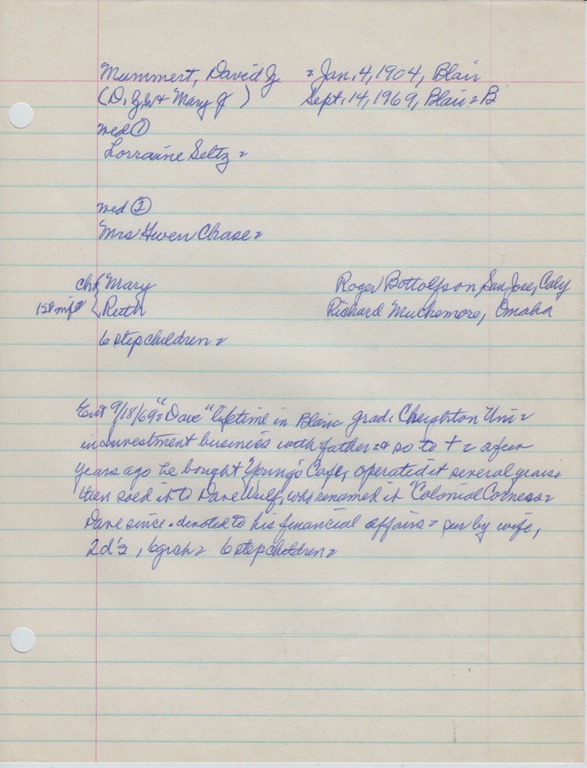 Mummert, David G = Jan. 4, 1904, Blair
(D. G. Sr + Mary J ) Sept. 14, 1969, Blair = B
med ①
Lorraine Seltz =
med ②
Mrs Gwen Chase =
ch { Mary Roger Bottolfson San Jose, Calif
1st mge { Ruth Richard Muchemore, Omaha
6 stepchildren =
Ent 9/18/69 = "Dave" lifetime in Blair = grad. Creighton Uni =
in investment business with father = + so to + = a few
years ago he bought Young's Cafe, operated it several years =
then sold it to Dave Wulf, who renamed it "Colonial Corners" =
Dave since devoted to his financial affairs = sur by wife,
2 d's, 6 grch = 6 stepchildren =